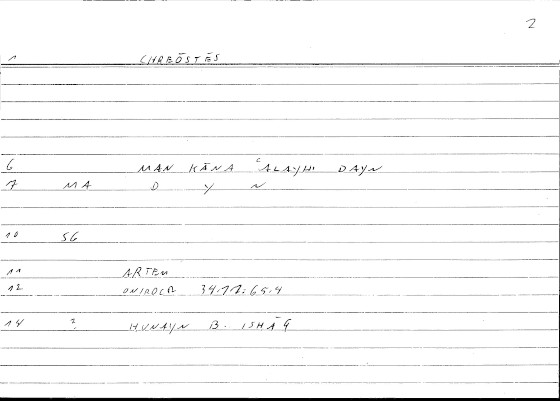 2
1 CHREŌSTĒS
6 MAN KĀNA ʿALAYHI DAYN
7 MA D Y N
10 SG
11 ARTEM
12 ONIROCR 34.11:65.4
14 ? ḤUNAYN B. ISḤĀQ